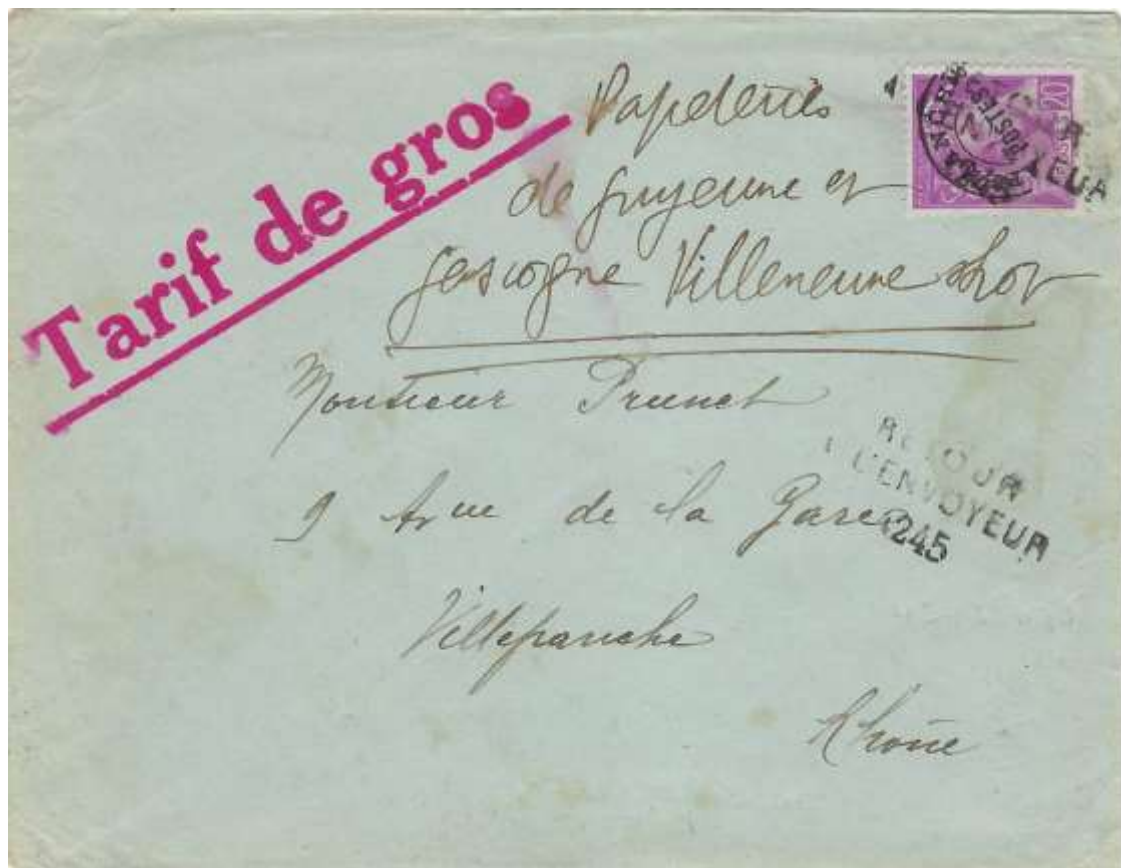 Tarif de gros
Papeteries
de guyenne et
gascogne Villeneuve s/Lot
Monsieur Prunet
9 Avue de la Gare
Villefranche
Rhône
RETOUR
L'ENVOYEUR
245
20
POSTES
YEUR